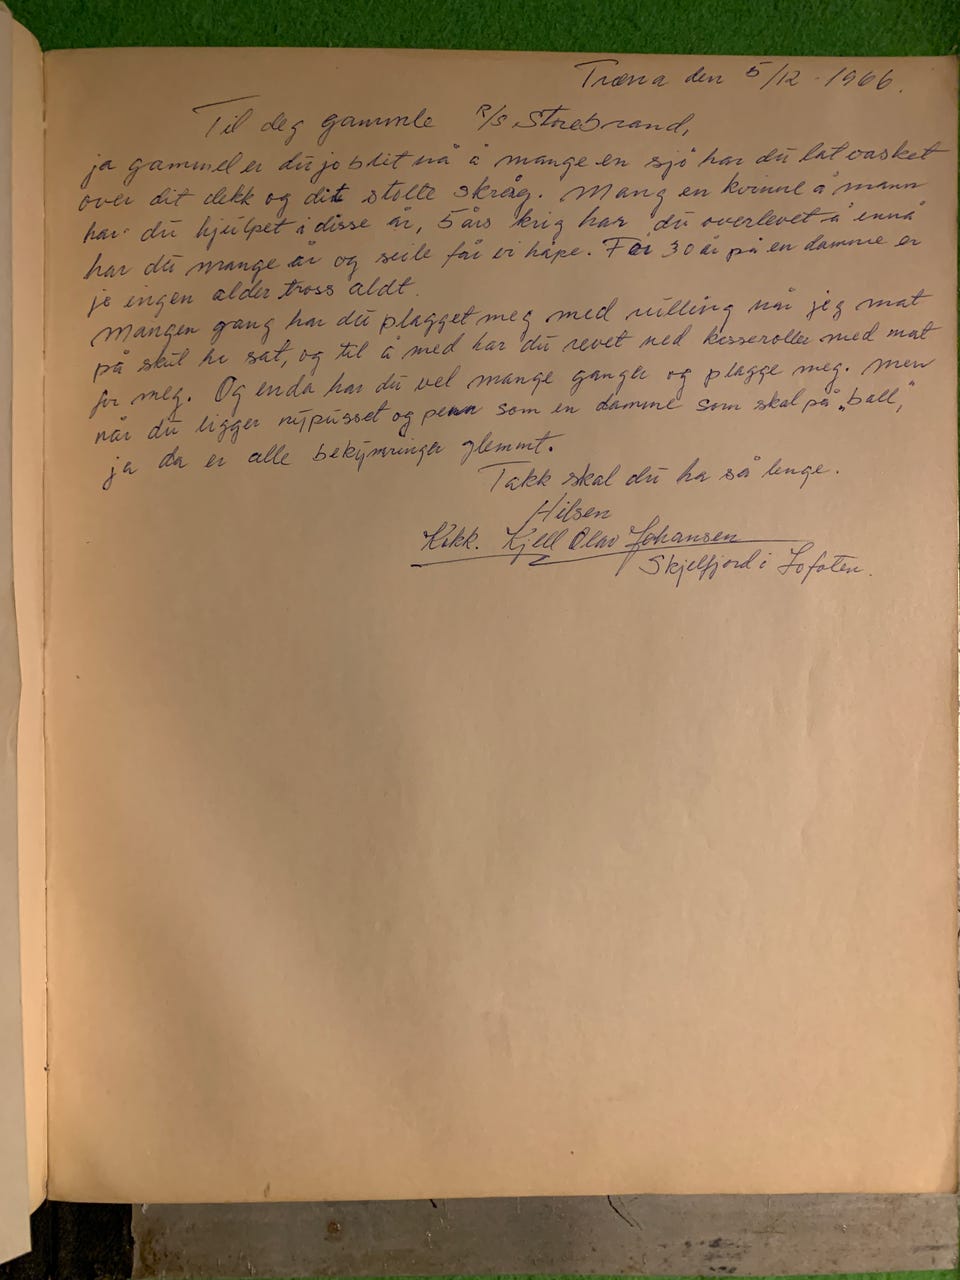 Træna den 5/12 - 1966.
Til deg gammle R/S Storebrand,
ja gammel er du jo blit nå å mange en sjø har du lat vasket
over dit dekk og dit stolte skråg. Mang en kvinne å mann
har du hjulpet i disse år, 5 års krig har du overlevet å ennå
har du mange år og seile får vi håpe. For 30 år på en damme er
jo ingen alder tross aldt.
Mangen gang har du plagget meg med rulling når jeg mat
på skul he sat, og til å med har du revet ned kasseroller med mat
for meg. Og enda har du vel mange ganger og plagge meg. Men
når du ligger nypusset og penn som en damme som skal på „ball,"
ja da er alle bekymringer glemmt.
Takk skal du ha så lenge.
Hilsen
Kokk. Kjell Olav Johansen
Skjelfjord i Lofoten.